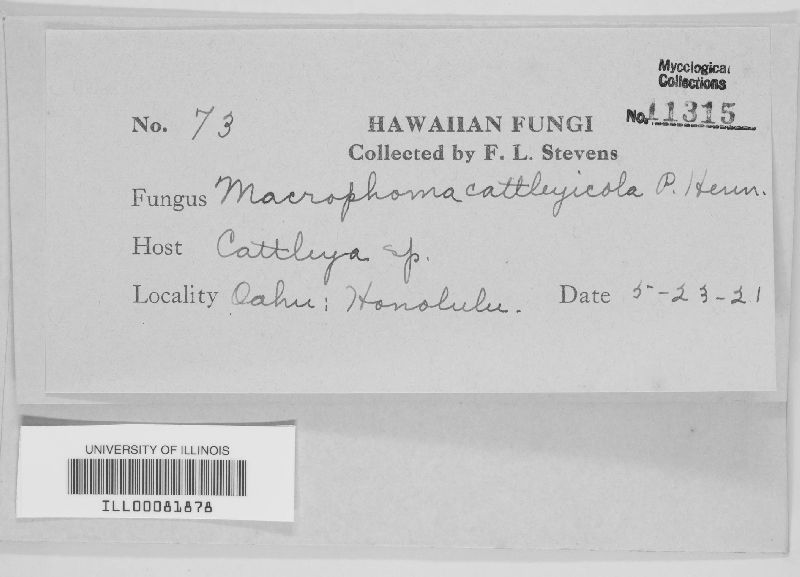 Mycological
Collections
No. 11315
No. 73
HAWAIIAN FUNGI
Collected by F. L. Stevens
Fungus Macrophoma cattleyicola P. Henn.
Host Cattleya sp.
Locality Oahu: Honolulu. Date 5-23-21
UNIVERSITY OF ILLINOIS
ILL00081878